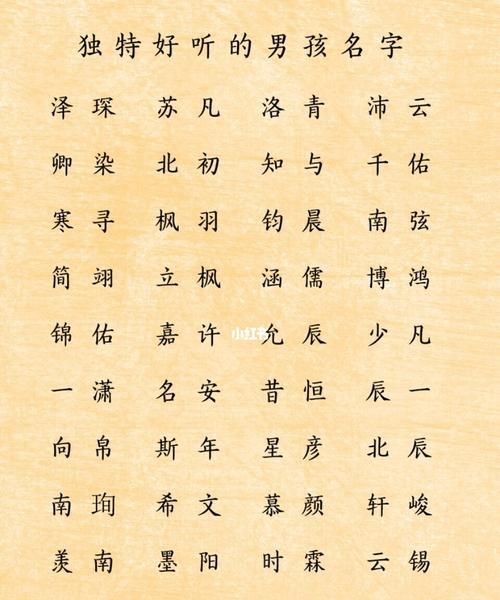 独特好听的男孩名字
泽琛 苏凡 洛青 沛云
卿染 北初 知与 千佑
寒寻 枫羽 钧晨 南弦
简翊 立枫 涵儒 博鸿
锦佑 嘉许 允辰 少凡
小红书
一潇 名安 昔恒 辰一
向帛 斯年 星彦 北辰
南珣 希文 慕颜 轩峻
羡南 墨阳 时霖 云锡